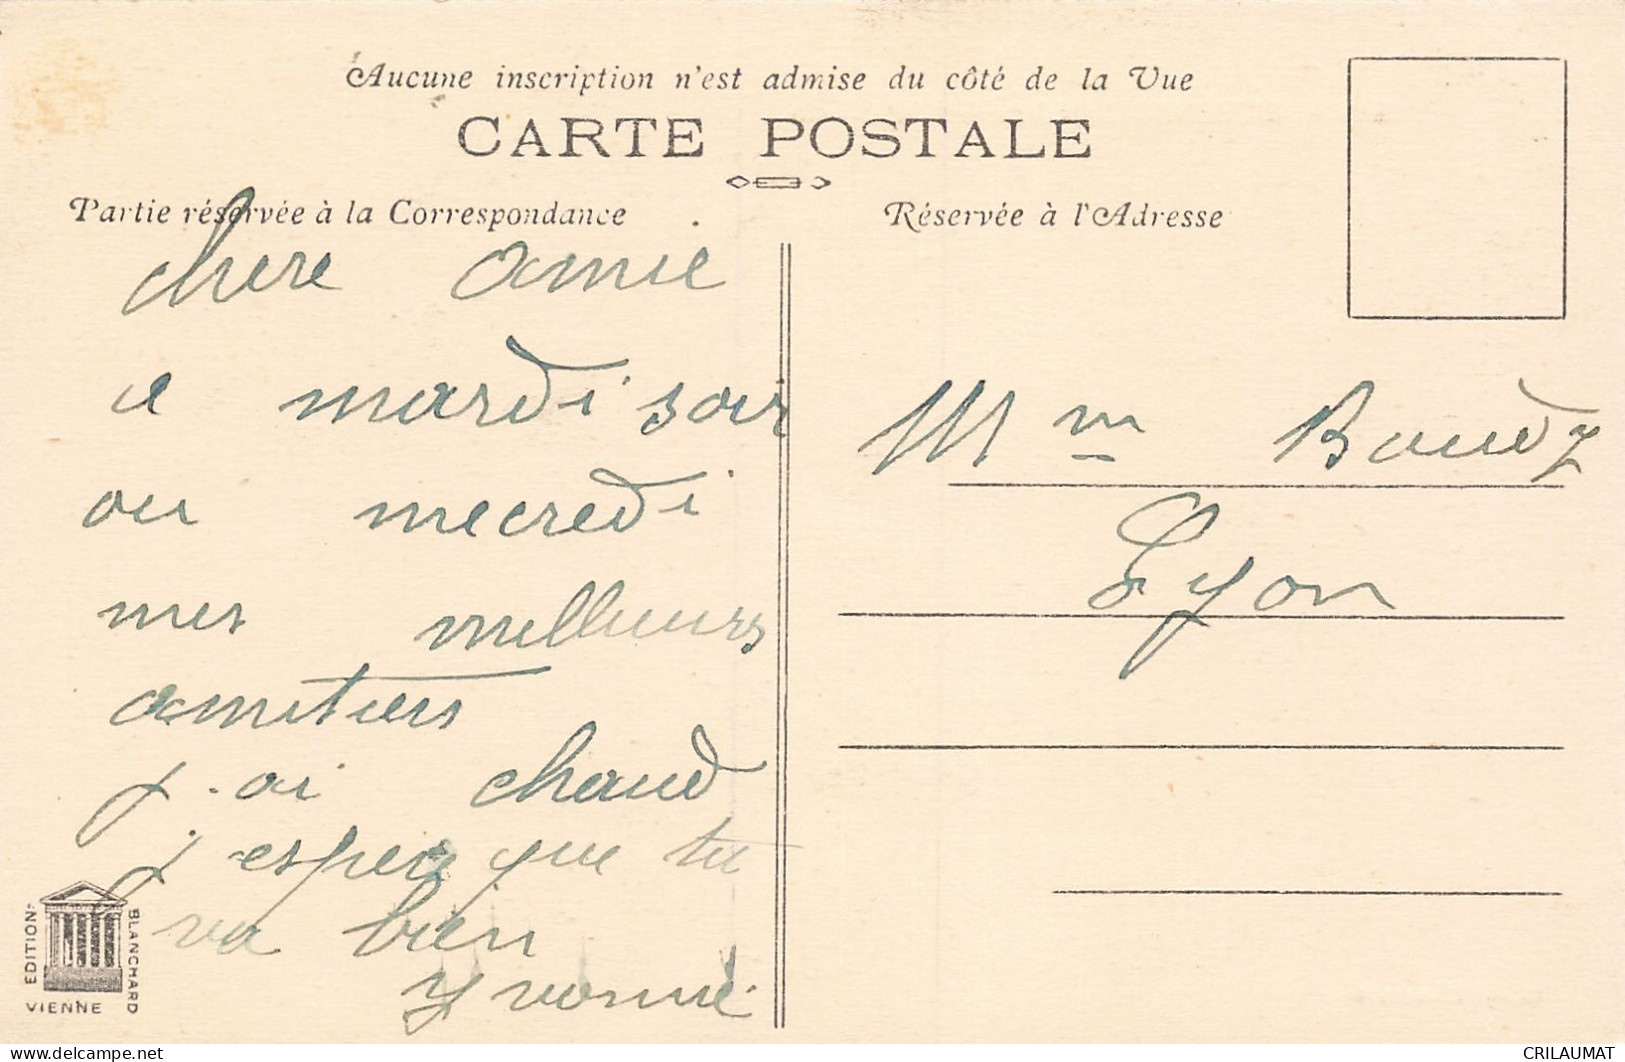 Aucune inscription n'est admise du côté de la Vue
CARTE POSTALE
Partie réservée à la Correspondance
Réservée à l'Adresse
chere amie
a mardi soir
ou mecredi
mes meilleurs
amitiers
j'ai chaud
j espere que tu
va bien
Yvonne
Mme
Lyon
EDITION BLANCHARD
VIENNE
CRILAUMAT